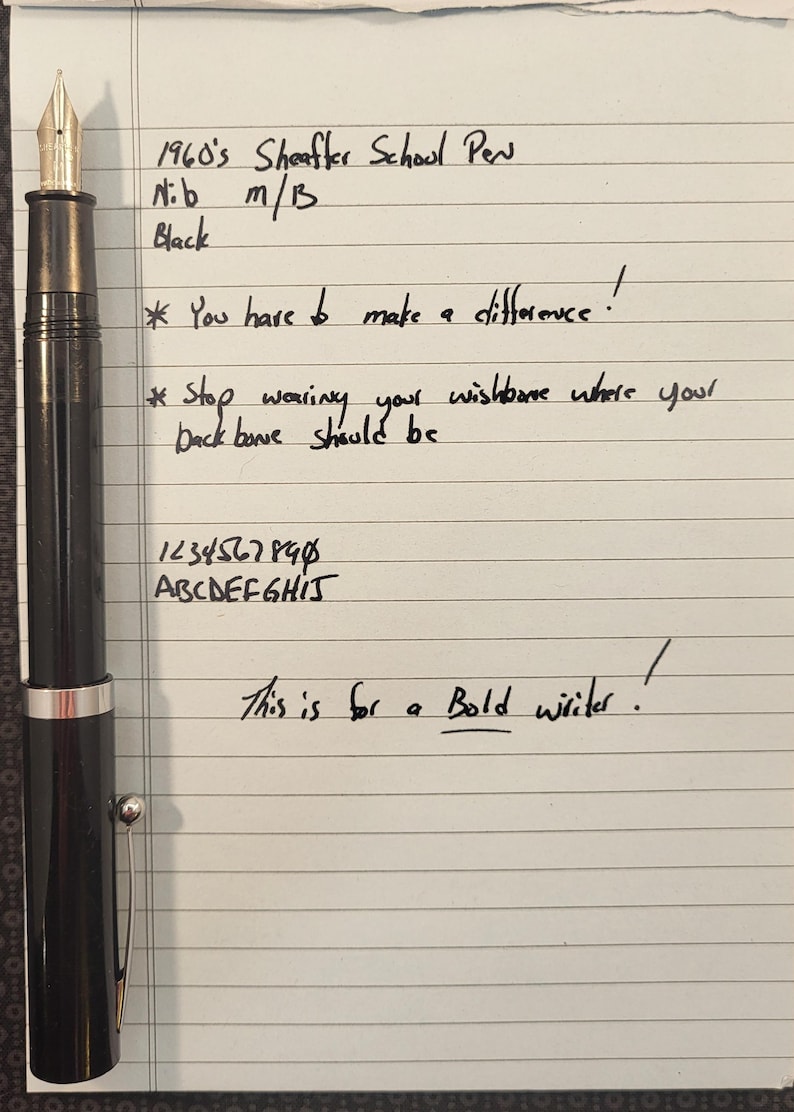 1960's Sheaffer School Pen
Nib M/B
Black
* You have to make a difference!
* Stop wearing your wishbone where your
backbone should be
1234567890
ABCDEFGHIJ
This is for a Bold writer!
SHEAFFER'S